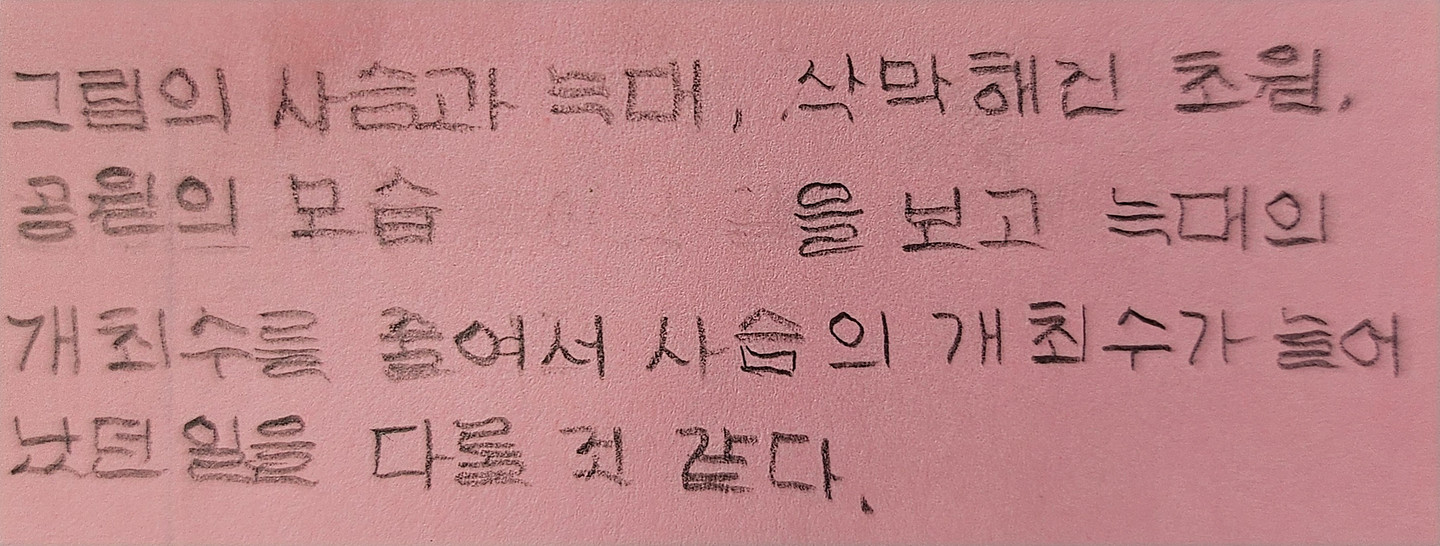 그림의 사슴과 늑대, 삭막해진 초원,
공원의 모습 을 보고 늑대의
개최수를 줄여서 사슴의 개최수가 늘어
났던 일을 다룰 것 같다.